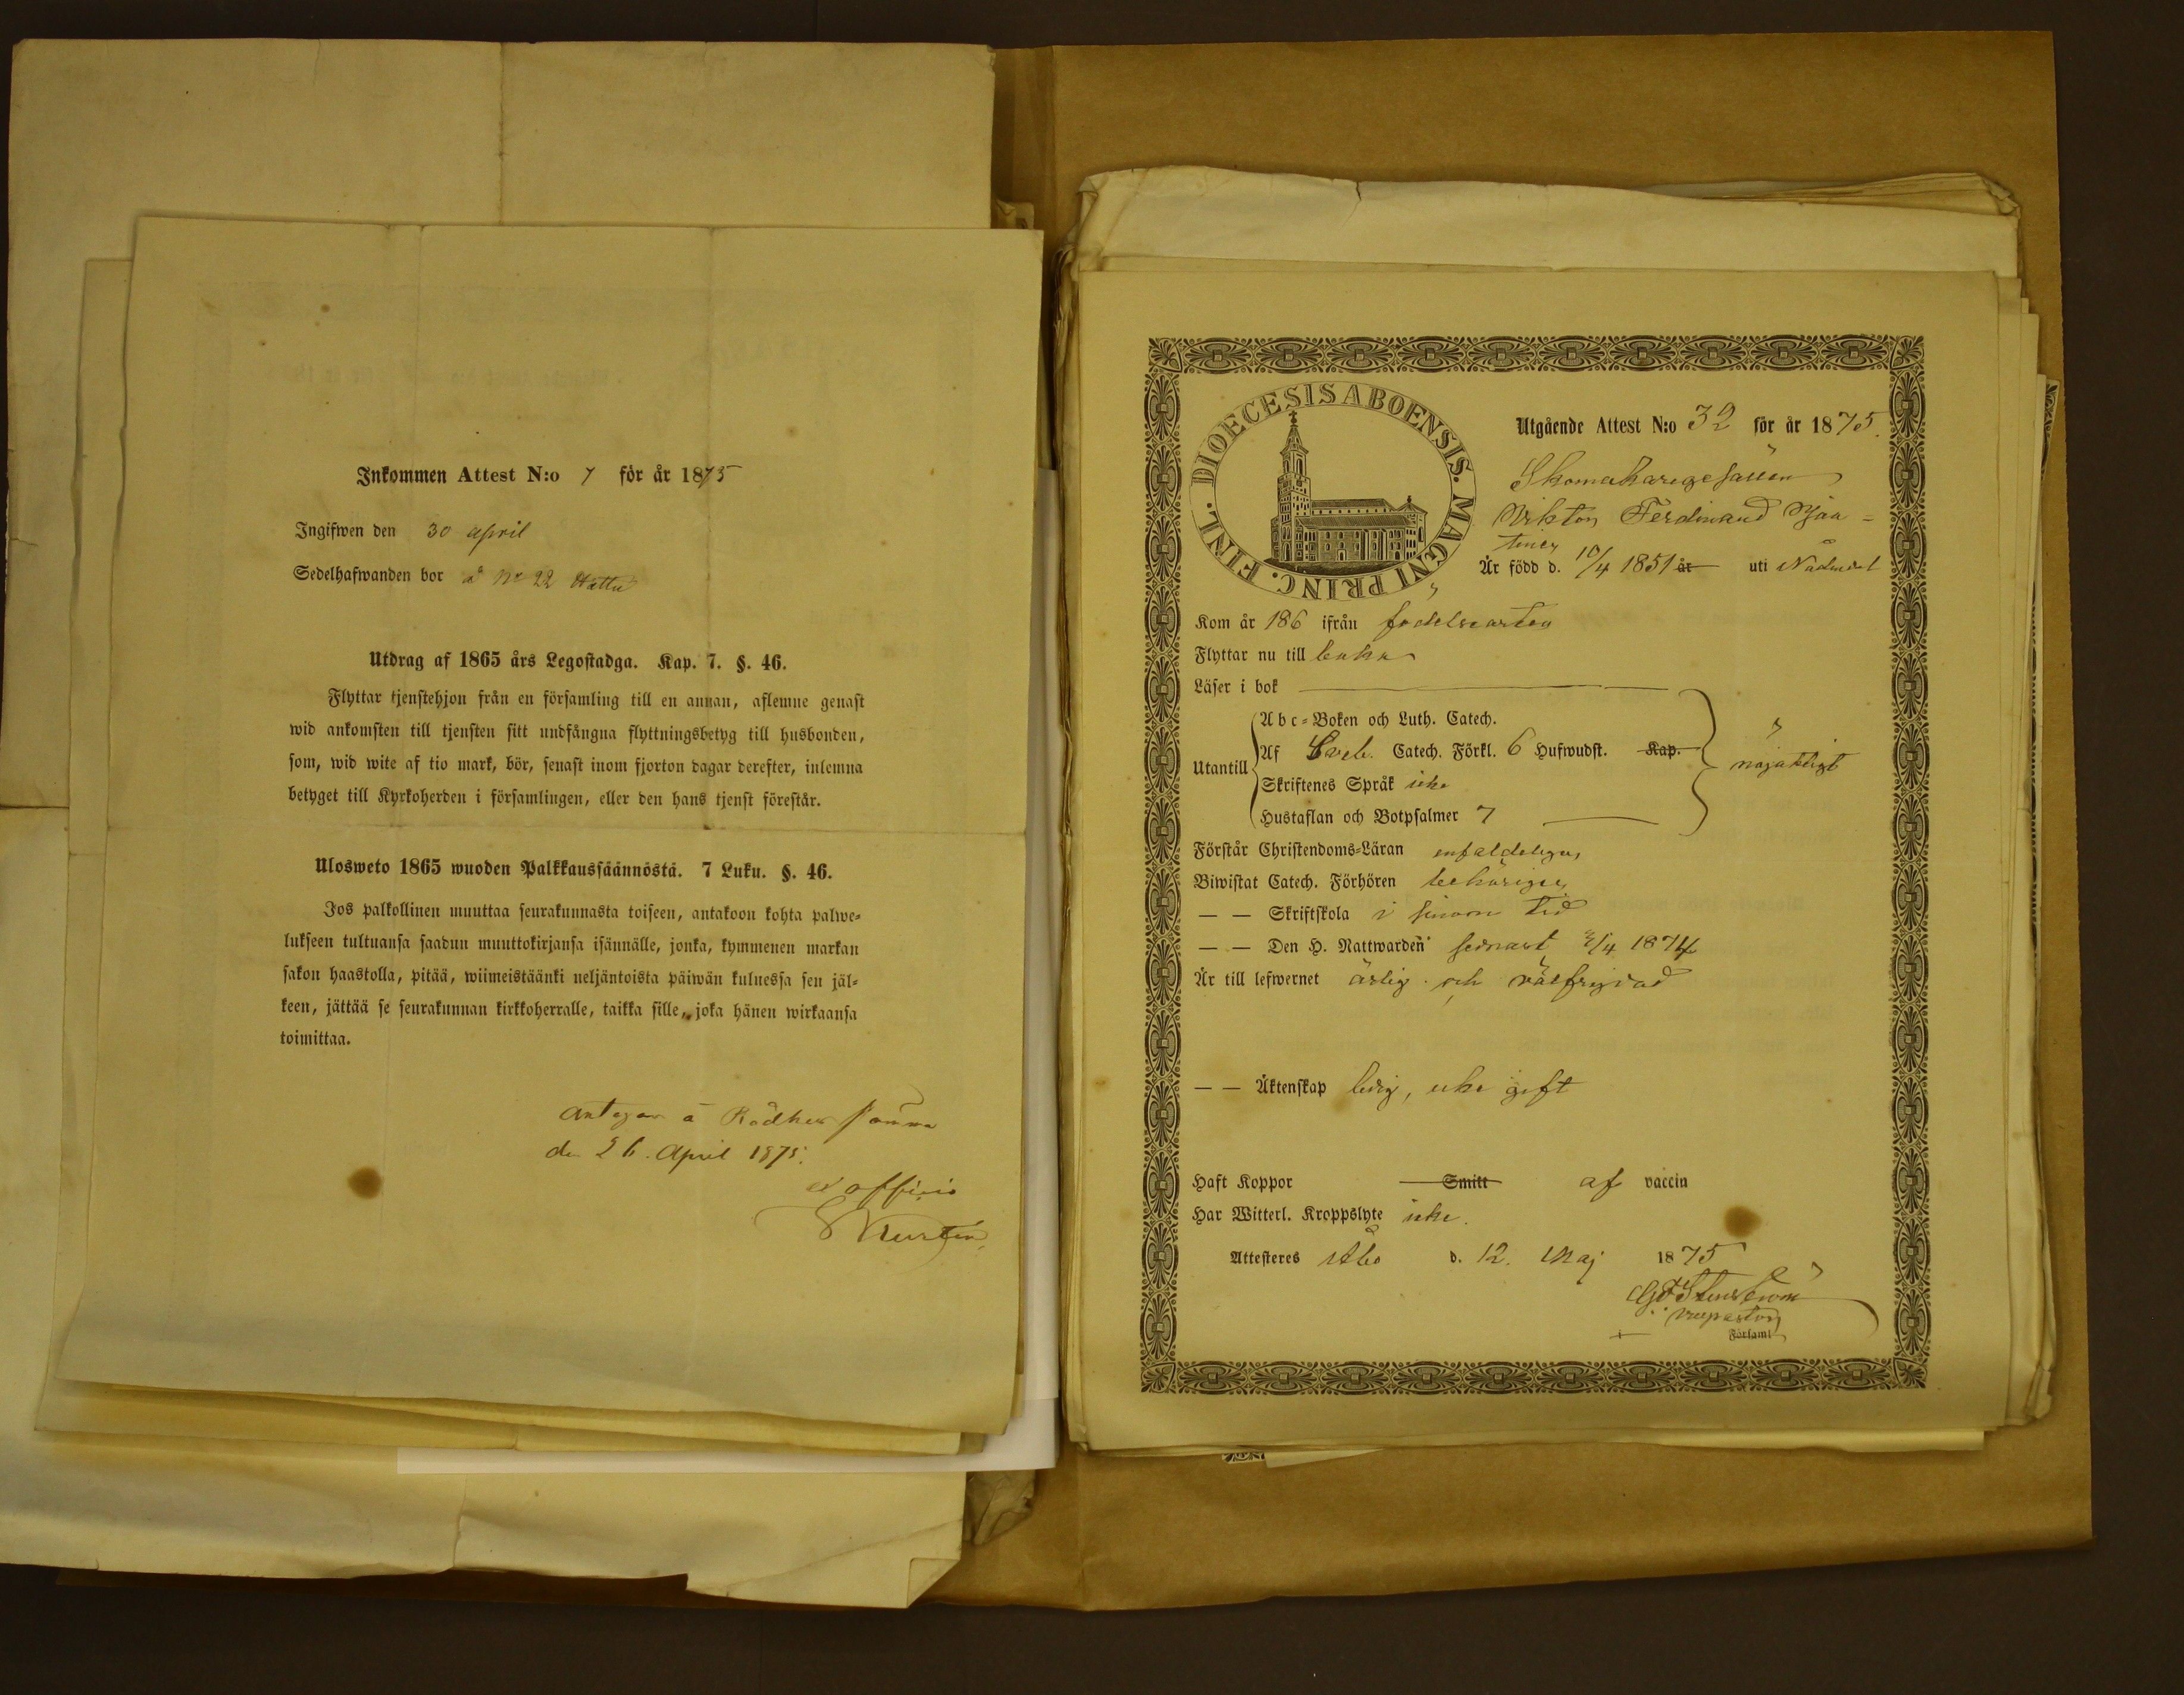 Inkommen Attest N:o 7 för år 1875
Ingifwen den 30 april
Sedelhafwanden bor å No 22
Utdrag af 1865 års Legostadga. Kap. 7. §. 46.
Flyttar tjenstehjon från en församling till en annan, aflemne genast
wid ankomsten till tjensten sitt undfångna flyttningsbetyg till husbonden,
som, wid wite af tio mark, bör, senast inom fjorton dagar derefter, inlemna
betyget till Kyrkoherden i församlingen, eller den hans tjenst förestår.
Ulosweto 1865 wuoden Palkkaussäännöstä. 7 Luku. §. 46.
Jos palkollinen muuttaa seurakunnasta toiseen, antakoon kohta palwe-
lukseen tultuansa saadun muuttokirjansa isännälle, jonka, kymmenen markan
sakon haastolla, pitää, wiimeistäänki neljäntoista päiwän kuluessa sen jäl-
keen, jättää se seurakunnan kirkkoherralle, taikka sille, joka hänen wirkaansa
toimittaa.
å
den 26. April 1875.
ex officio
DIOECESIS ABOENSIS. MAGNI PRINC. FINL.
Utgående Attest N:o 32 för år 1875.
Skomakaregesällen
Viktor Ferdinand
Är född d. 10/4 1851 år uti Nådendal
Kom år 186 ifrån födelseorten
Flyttar nu till
Läser i bok
Abc-Boken och Luth. Catech.
Af Sveb. Catech. Förkl. 6 Hufwudst. Kap.
Utantill nöjaktigt
Skriftenes Språk icke
Hustaflan och Botpsalmer 7
Förstår Christendoms-Läran enfaldeligen
Biwistat Catech. Förhören behörigen
— — Skriftskola i sinom tid
— — Den H. Nattwarden senast /4 1874
Är till lefwernet ärlig och välfrejdad
— — Äktenskap ledig, icke gift
Haft Koppor Smitt af vaccin
Har Witterl. Kroppslyte icke.
Attesteres Åbo d. 12. Maj 1875
vicepastor
Församl